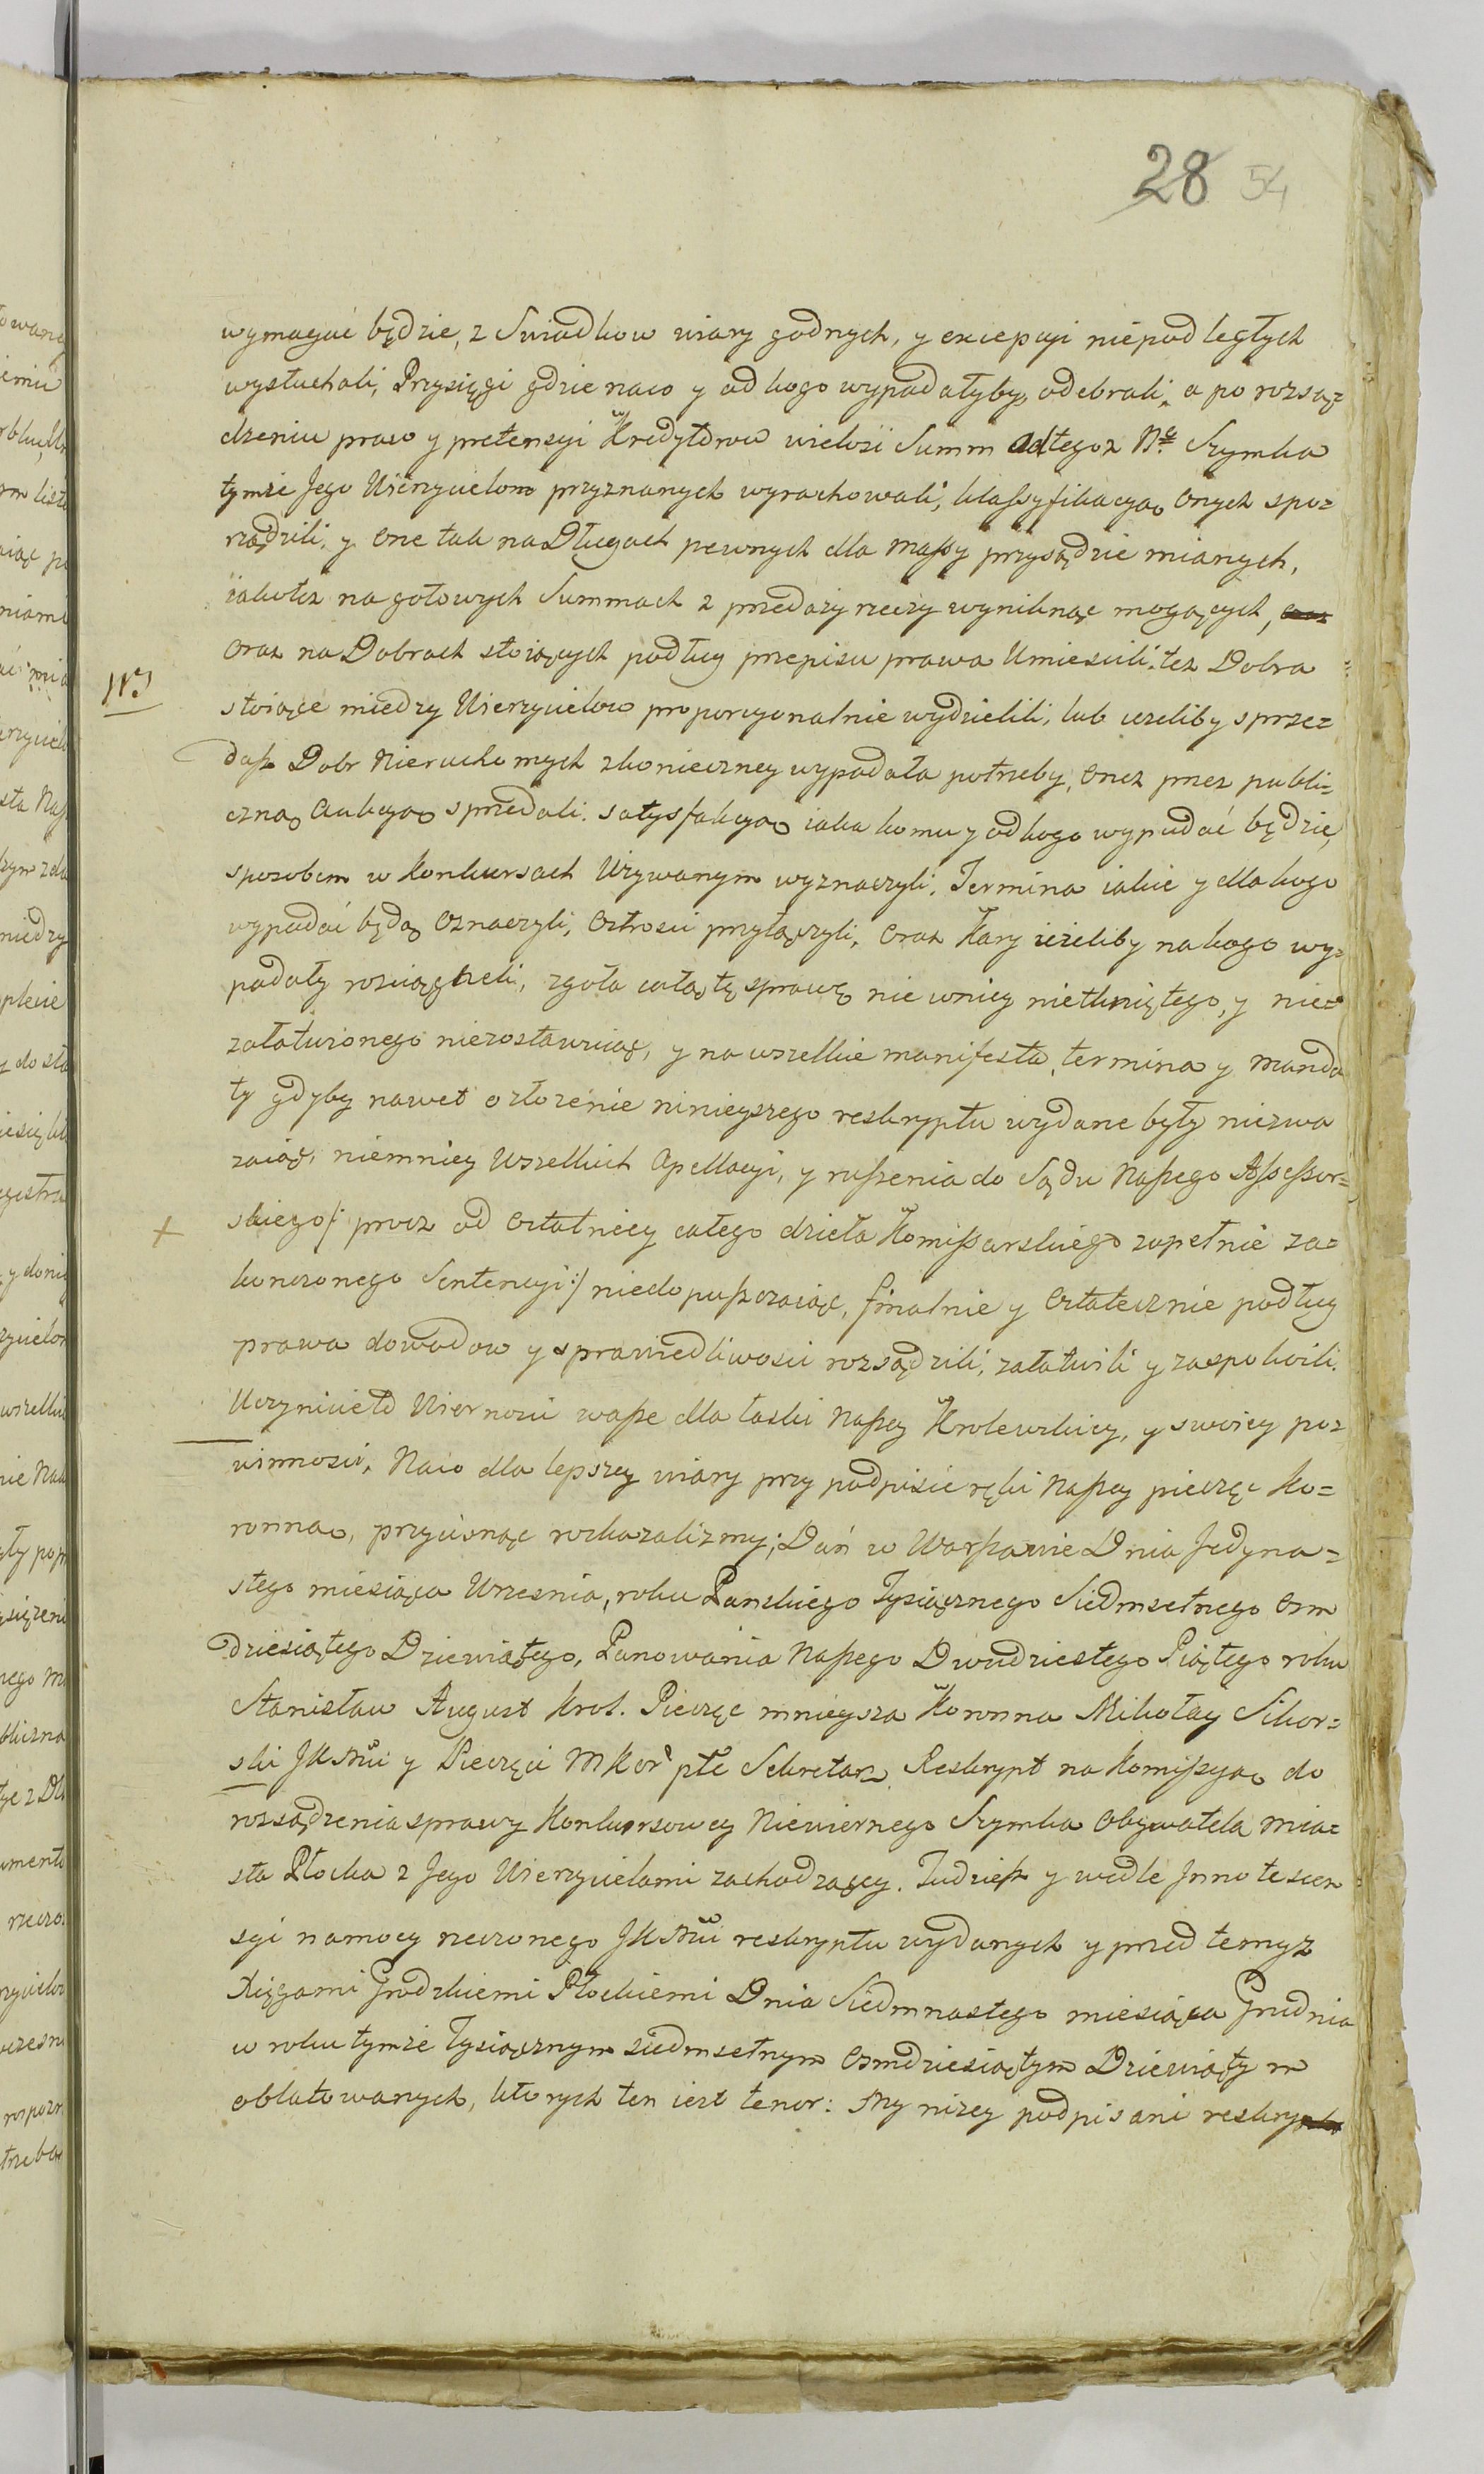 28 54
wymagać będzie, z Swiadkow wiary godnych, y excepcyi niepodległych
wysłuchali, Przysięgi gdzie naco y od kogo wypadałyby, odebrali, a po rozsą=
dzeniu praw y pretensyi Kredytorow wielosi Summ od tegoż N° Szymka
tymże Jego Wierzycielom przyznanych wyrachowali, klassyfikacyą onych spo=
rządzili, y one tak na Długach pewnych dla massy przysądzie mianych,
iakoteż na gotowych Summach z przedaży rzeczy wyniknąć mogących,
oraz na Dobrach stoiących podług przepisu prawa Umiescili. też Dobra
stoiące miedzy Wierzycielow proporcyonalnie wydzielili, lub ieżeliby sprze=
daż Dobr Nieruchomych z konieczney wypadała potrzeby, onez przez publi=
czną Aukcyą sprzedali. satysfakcyą iaka komu y od kogo wypadać będzie,
sposobem w Konkursach Używanym wyznaczyli, Termina iakie y dla kogo
wypadać będą oznaczyli, Ostrosci przyłączyli, oraz Kary ieżeliby na kogo wy=
padały rosciągneli, zgoła całą tę sprawę nic wniey nietkniętego, y nie=
załatwionego niezostawuiąc, y na wszelkie manifesta, termina y manda
ty gdyby nawet o złożenie ninieyszego reskryptu wydane były niezwa
zaiąc, niemniey wszelkich Apellacyi, y ruszenia do Sądu Naszego Assessor=
skiego /: procz od Ostatniey całego dzieła Komissarskiego zupełnie za=
konczonego Sentencyi :/ niedopuszczaiąc, finalnie y Ostatecznie podług
prawa dowodow y sprawiedliwosci rozsądzili, załatwili y zaspokoili.
Uczynicie to Wiernosci wasze dla łaski Naszey Krolewskiey, y swoiey po=
winnosci, Naco dla lepszey wiary przy podpisie ręki Naszey pieczęc Ko=
ronną, przycisnąć rozkazalizmy; Dań w Warszawie Dnia Jedyna=
stego miesiąca Wrzesnia, roku Panskiego Tysiącznego Siedmsetnego Osm
dziesiątego Dziewiątego, Panowania Naszego Dwudziestego Piątego roku
Stanisław August Krol. Pieczęc mnieysza Koronna Mikołay Sikor=
ski JKMci y Pieczęci M Kor pte Sekretarz. Reskrypt na Komissyą do
rozsądzenia sprawy Konkursowey Niewiernego Szymka Obywatela Mia=
sta Płocka z Jego Wierzycielami zachodzącey. Tudziesz y wedle Innotescen
syi na mocy rzeczonego JKMci reskryptu wydanych y przed temyż
Xięgami Grodzkiemi Płockiemi Dnia Siedmnastego miesiąca Grudnia
w roku tymże Tysiącznym siedmsetnym Osmdziesiątym Dziewiątym
oblatowanych, ktorych ten iest tenor: My niżey podpisani